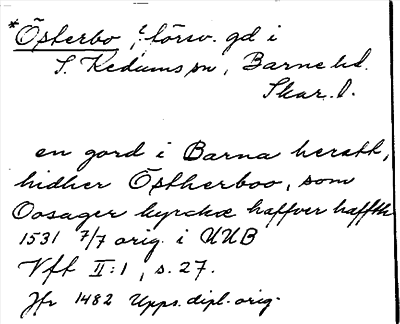 *Österbo, försv. gd i
S. Kedums sn, Barne hd.
Skar. l.
en gord i Barna heratt,
hidher Östherboo, som
Oosager kyrckæ haffver haffth
1531 7/7 orig. i UUB
Vff II:1, s. 27.
Jfr 1482 Upps. dipl. orig.